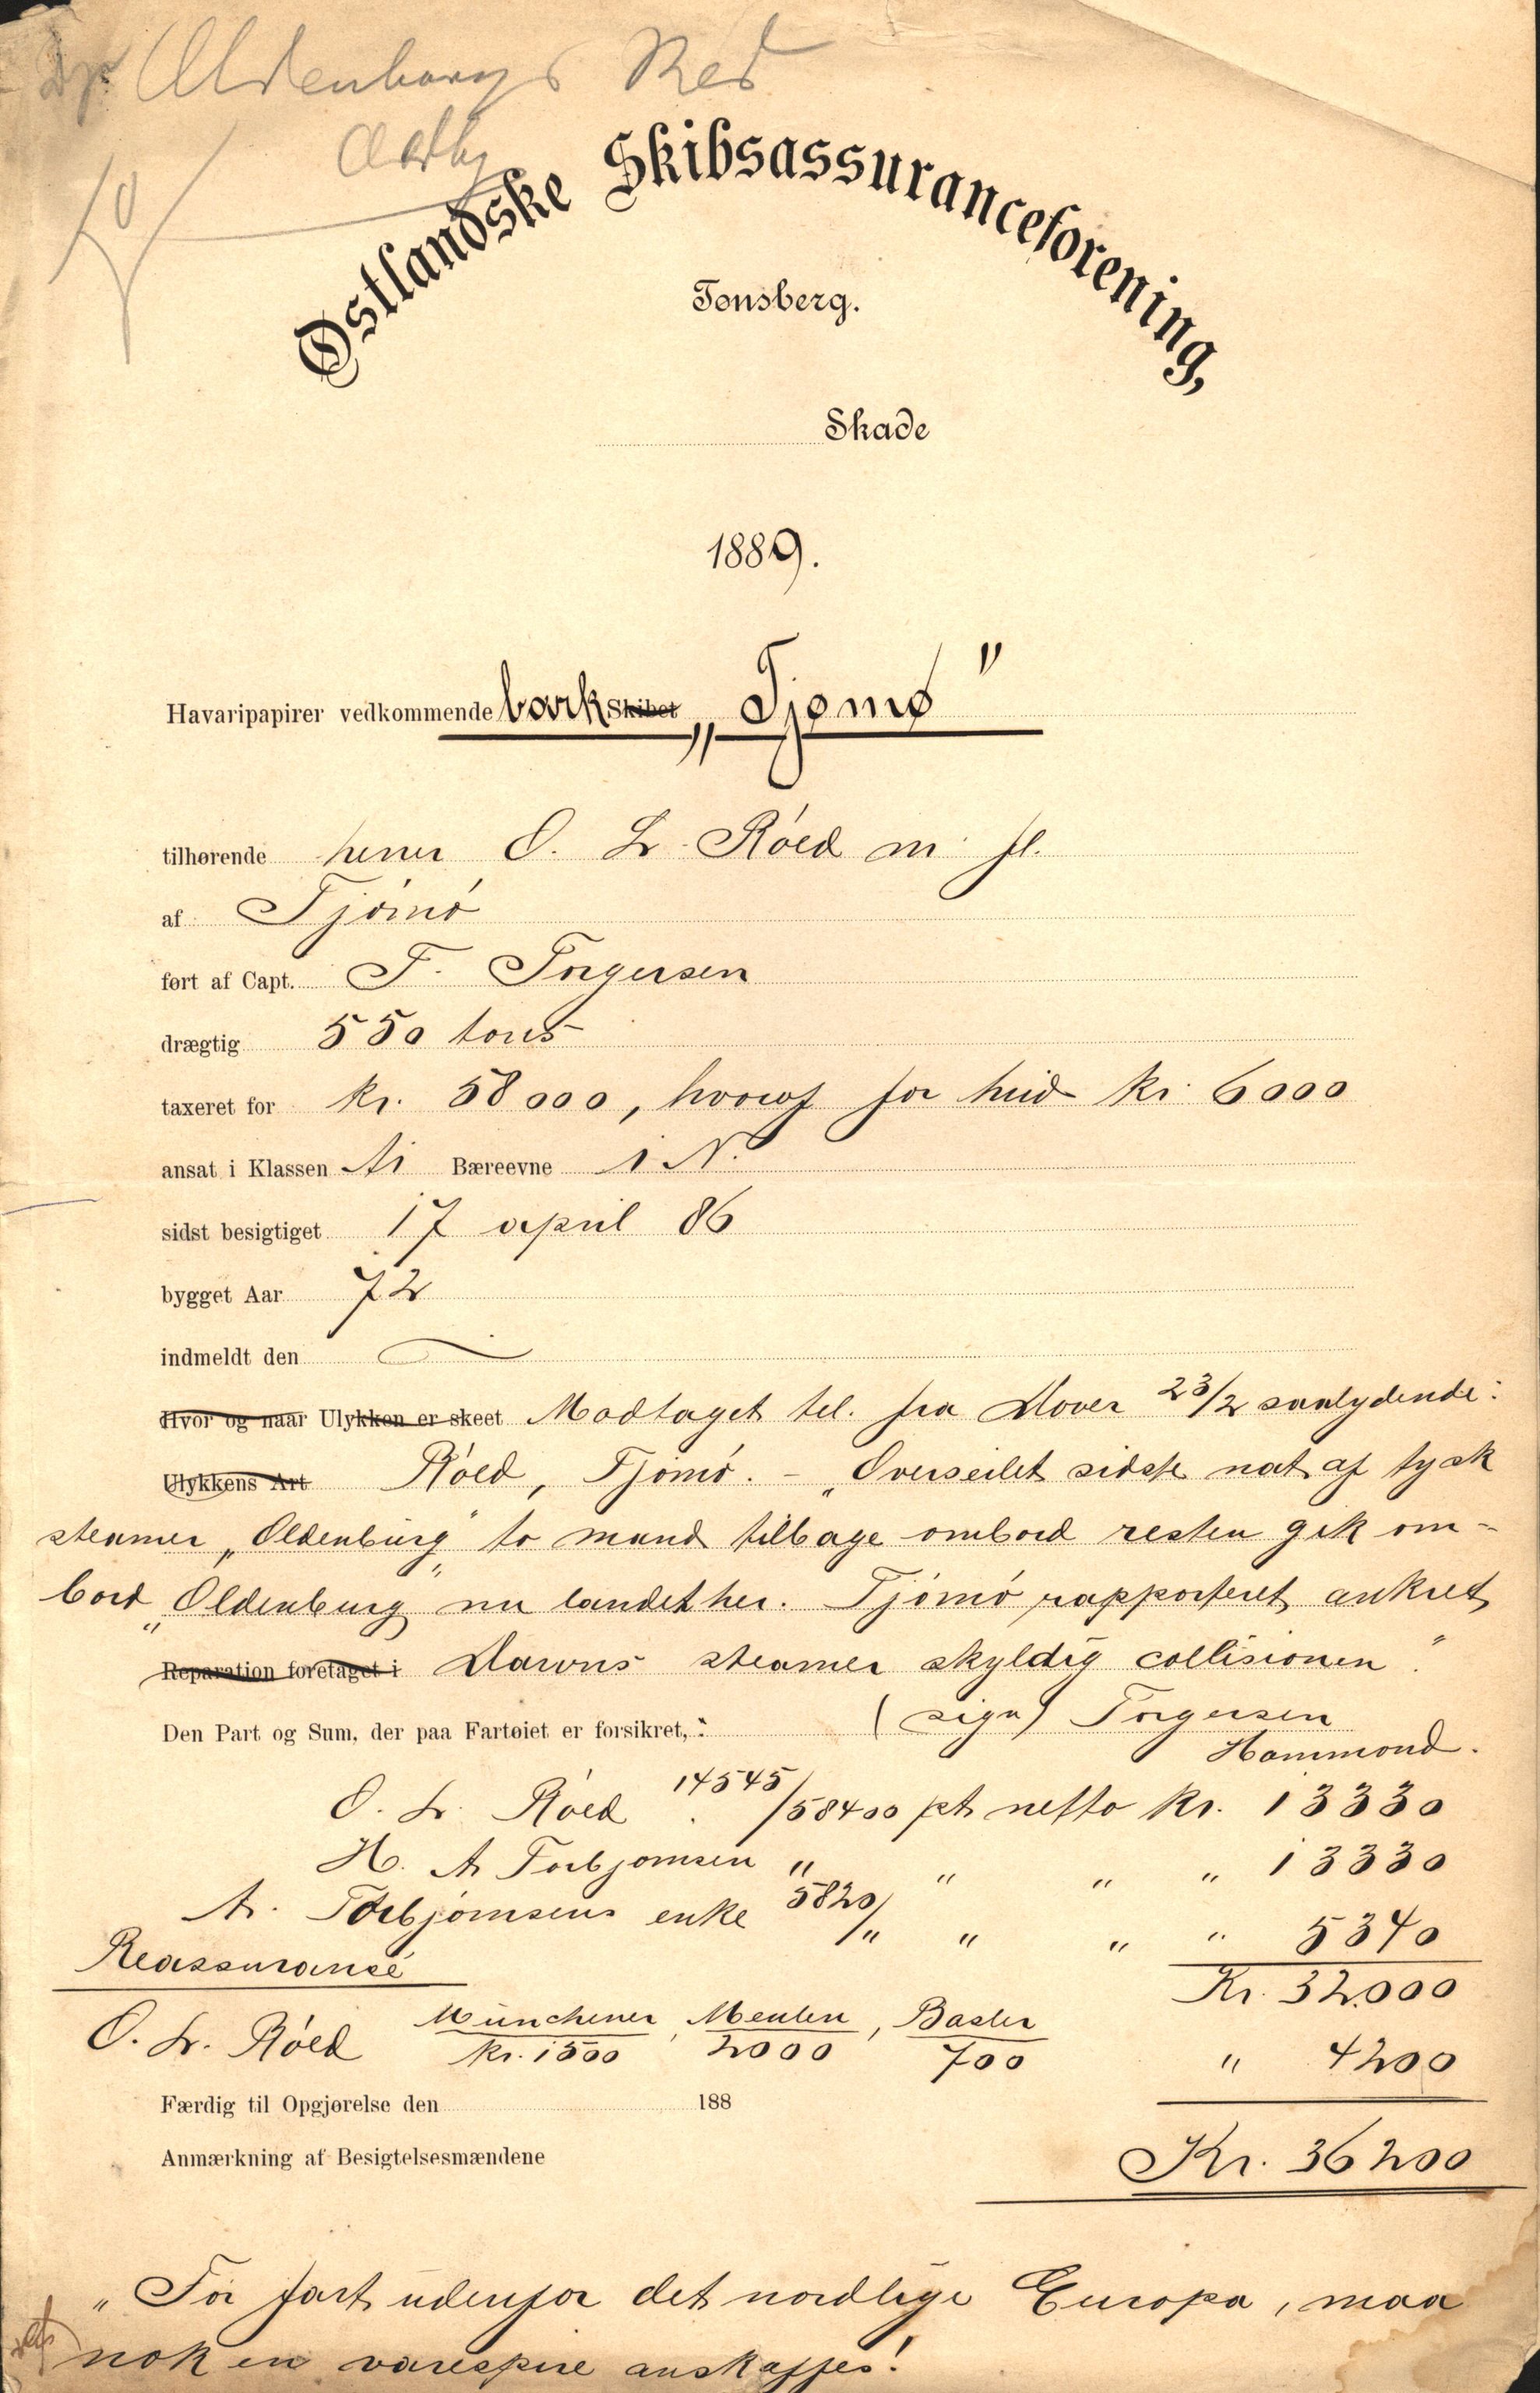 Oldenburgs Red
Østlandske Skibsassuranceforening,
Tønsberg.
Skade
1889.
Havaripapirer vedkommende bark Skibet „Tjømø"
tilhørende herrer O. L. Røed m. fl.
af Tjømø
ført af Capt. F. Torgersen
drægtig 550 tons
taxeret for kr. 58000, hvoraf for hud kr. 6000
ansat i Klassen A1 Bæreevne 1 N.
sidst besigtiget 17 april 86
bygget Aar 72
indmeldt den
Hvor og naar Ulykken er skeet Modtaget tel. fra Dover 23/2 saalydende:
Ulykkens Art Røed, Tjømø. – „Overseilet sidste nat af tysk
steamer „Oldenburg" to mand tilbage ombord resten gik om-
bord „Oldenburg" nu landet her. Tjømø rapporteret ankret
Reparation foretaget i Downs steamer skyldig collisionen".
Den Part og Sum, der paa Fartøiet er forsikret,: (sign) Torgersen
Hammond.
O. L. Røed 14545/58400 pt netto kr. 13330
H. A. Torbjørnsen " " " " 13330
A. Torbjørnsens enke 5820/" " " " 5340
Kr. 32.000
Reassurance
O. L. Røed Münchener kr. 1500, Meulen 2000, Basler 700 " 4200
Færdig til Opgjørelse den 188
Kr. 36200
Anmærkning af Besigtelsesmændene
„For fart udenfor det nordlige Europa, maa
nok en varespire anskaffes!